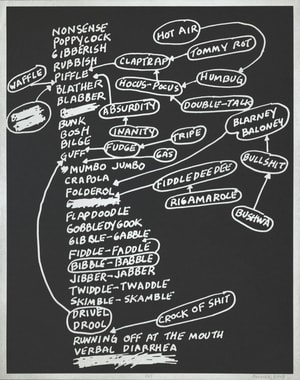 NONSENSE
POPPYCOCK
GIBBERISH
RUBBISH
PIFFLE
BLATHER
BLABBER
BUNK
BOSH
BILGE
GUFF
MUMBO JUMBO
CRAPOLA
FOLDEROL
FLAPDOODLE
GOBBLEDYGOOK
GIBBLE-GABBLE
FIDDLE-FADDLE
BIBBLE-BABBLE
JIBBER-JABBER
TWIDDLE-TWADDLE
SKIMBLE-SKAMBLE
DRIVEL
DROOL
RUNNING OFF AT THE MOUTH
VERBAL DIARRHEA
WAFFLE
HOT AIR
TOMMY ROT
CLAPTRAP
HUMBUG
HOCUS-POCUS
DOUBLE-TALK
ABSURDITY
INANITY
TRIPE
FUDGE
GAS
BLARNEY
BALONEY
BULLSHIT
BUSHWA
FIDDLEDEEDEE
RIGAMAROLE
CROCK OF SHIT